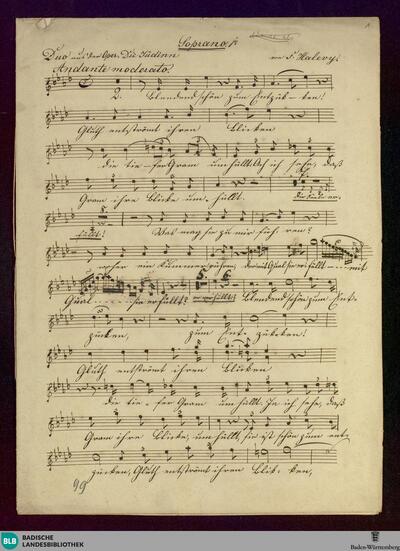 Soprano 1º
Duo aus der Oper: Die Jüdinn von F. Halevy.
Andante moderato.
2. Blendend schön zum Entzük- ken!
Gluth entströmt ihren Blicken
die tie- fer Gram umhüllt. Ach ich sehe, daß
Gram ihre Blicke um- hüllt.
füllt! Was mag sie zu mir füh- ren?
ein Kummer
Qual sie erfüllt? Blendend schön zum Ent-
zücken, zum Ent- zücken!
Gluth entströmt ihren Blicken
die tie- fer Gram umhüllt. Ja ich sehe, daß
Gram ihre Blicke, umhüllt, sie ist schön zum ent-
zücken, Gluth entströmt ihren Blik- ken,
99
BLB BADISCHE
LANDESBIBLIOTHEK
Baden-Württemberg